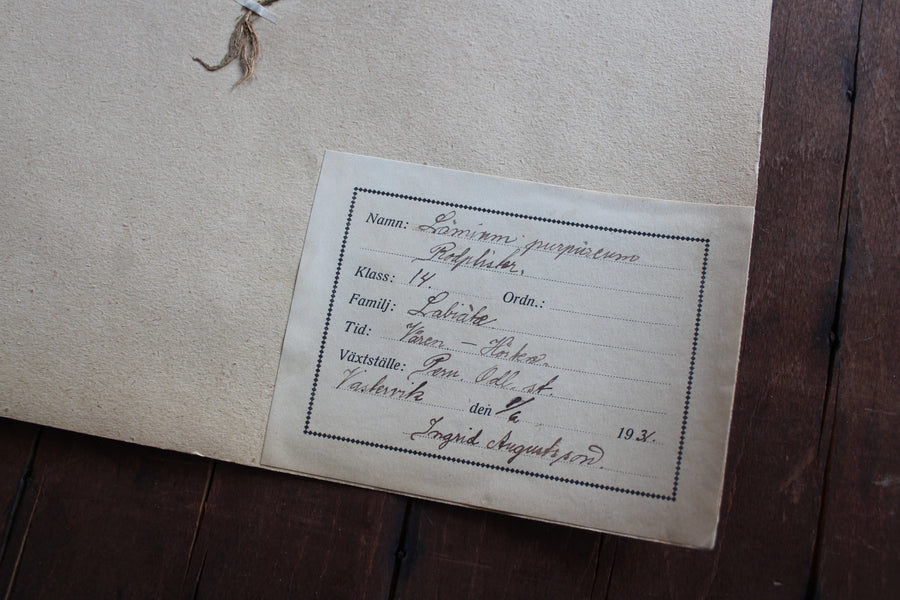 Namn: Lamium purpureum
Rödplister.
Klass: 14. Ordn.:
Familj: Labiatæ
Tid: Våren – Hösten.
Växtställe: Odl. st.
Västervik den 1931.
Ingrid Augustsson.